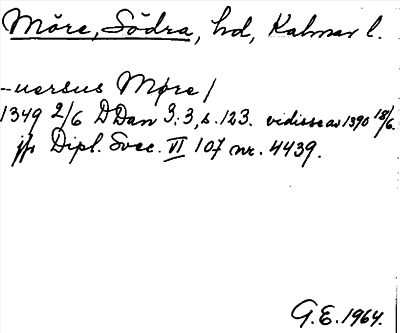 Möre, Södra, hd, Kalmar l.
-uersus Møre/
1349 2/6 DDan 3:3, s. 123. vidisse av 1390 18/6.
jfr Dipl. Svec. VI 107 nr. 4439.
G.E. 1964.